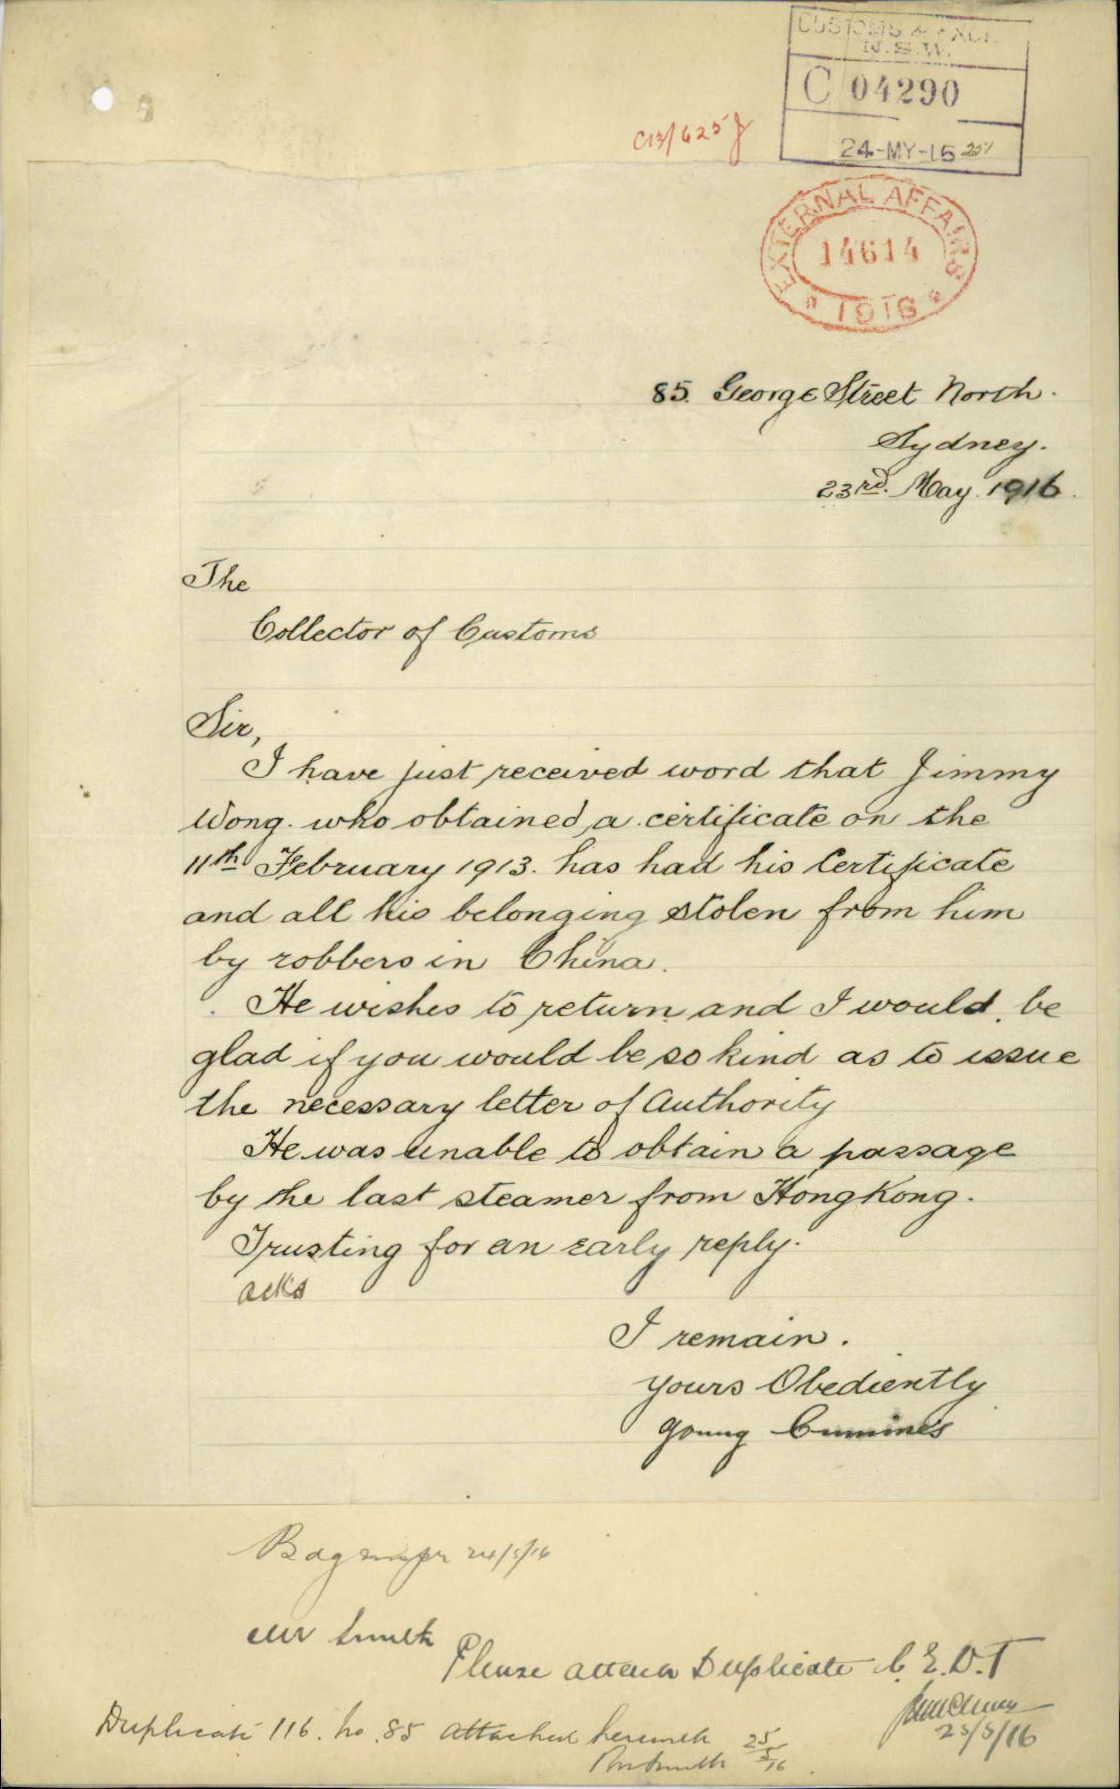 CUSTOMS & EXCISE
N.S.W.
C 04290
24-MY-16
C13/625
EXTERNAL AFFAIRS
14614
* 1916 *
85. George Street North.
Sydney.
23rd. May. 1916.
The
Collector of Customs
Sir,
I have just received word that Jimmy
Wong. who obtained a certificate on the
11th February 1913. has had his Certificate
and all his belonging stolen from him
by robbers in China.
He wishes to return and I would be
glad if you would be so kind as to issue
the necessary letter of Authority
He was unable to obtain a passage
by the last steamer from Hong Kong.
Trusting for an early reply.
ackd
I remain.
Yours Obediently
Young Cumines
24/5/16
Mr Smith
Please attach Duplicate C.E.D.T
25/5/16
Duplicate 116. No. 85 attached herewith 25/5/16